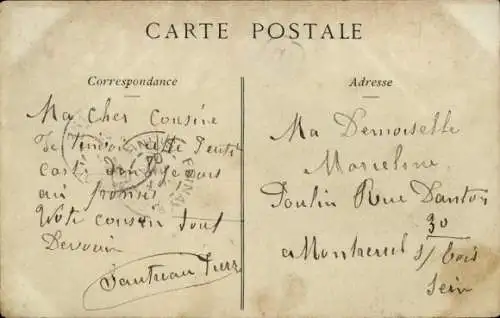 CARTE POSTALE
Correspondance
Ma Cher Cousine
Je t'envoie cette petite
carte
au
Votre cousin tout
Devoué
Adresse
Ma Demoiselle
Marceline
Poulin Rue Danton
30
a Montreuil s/ bois
Sein
EPINAL